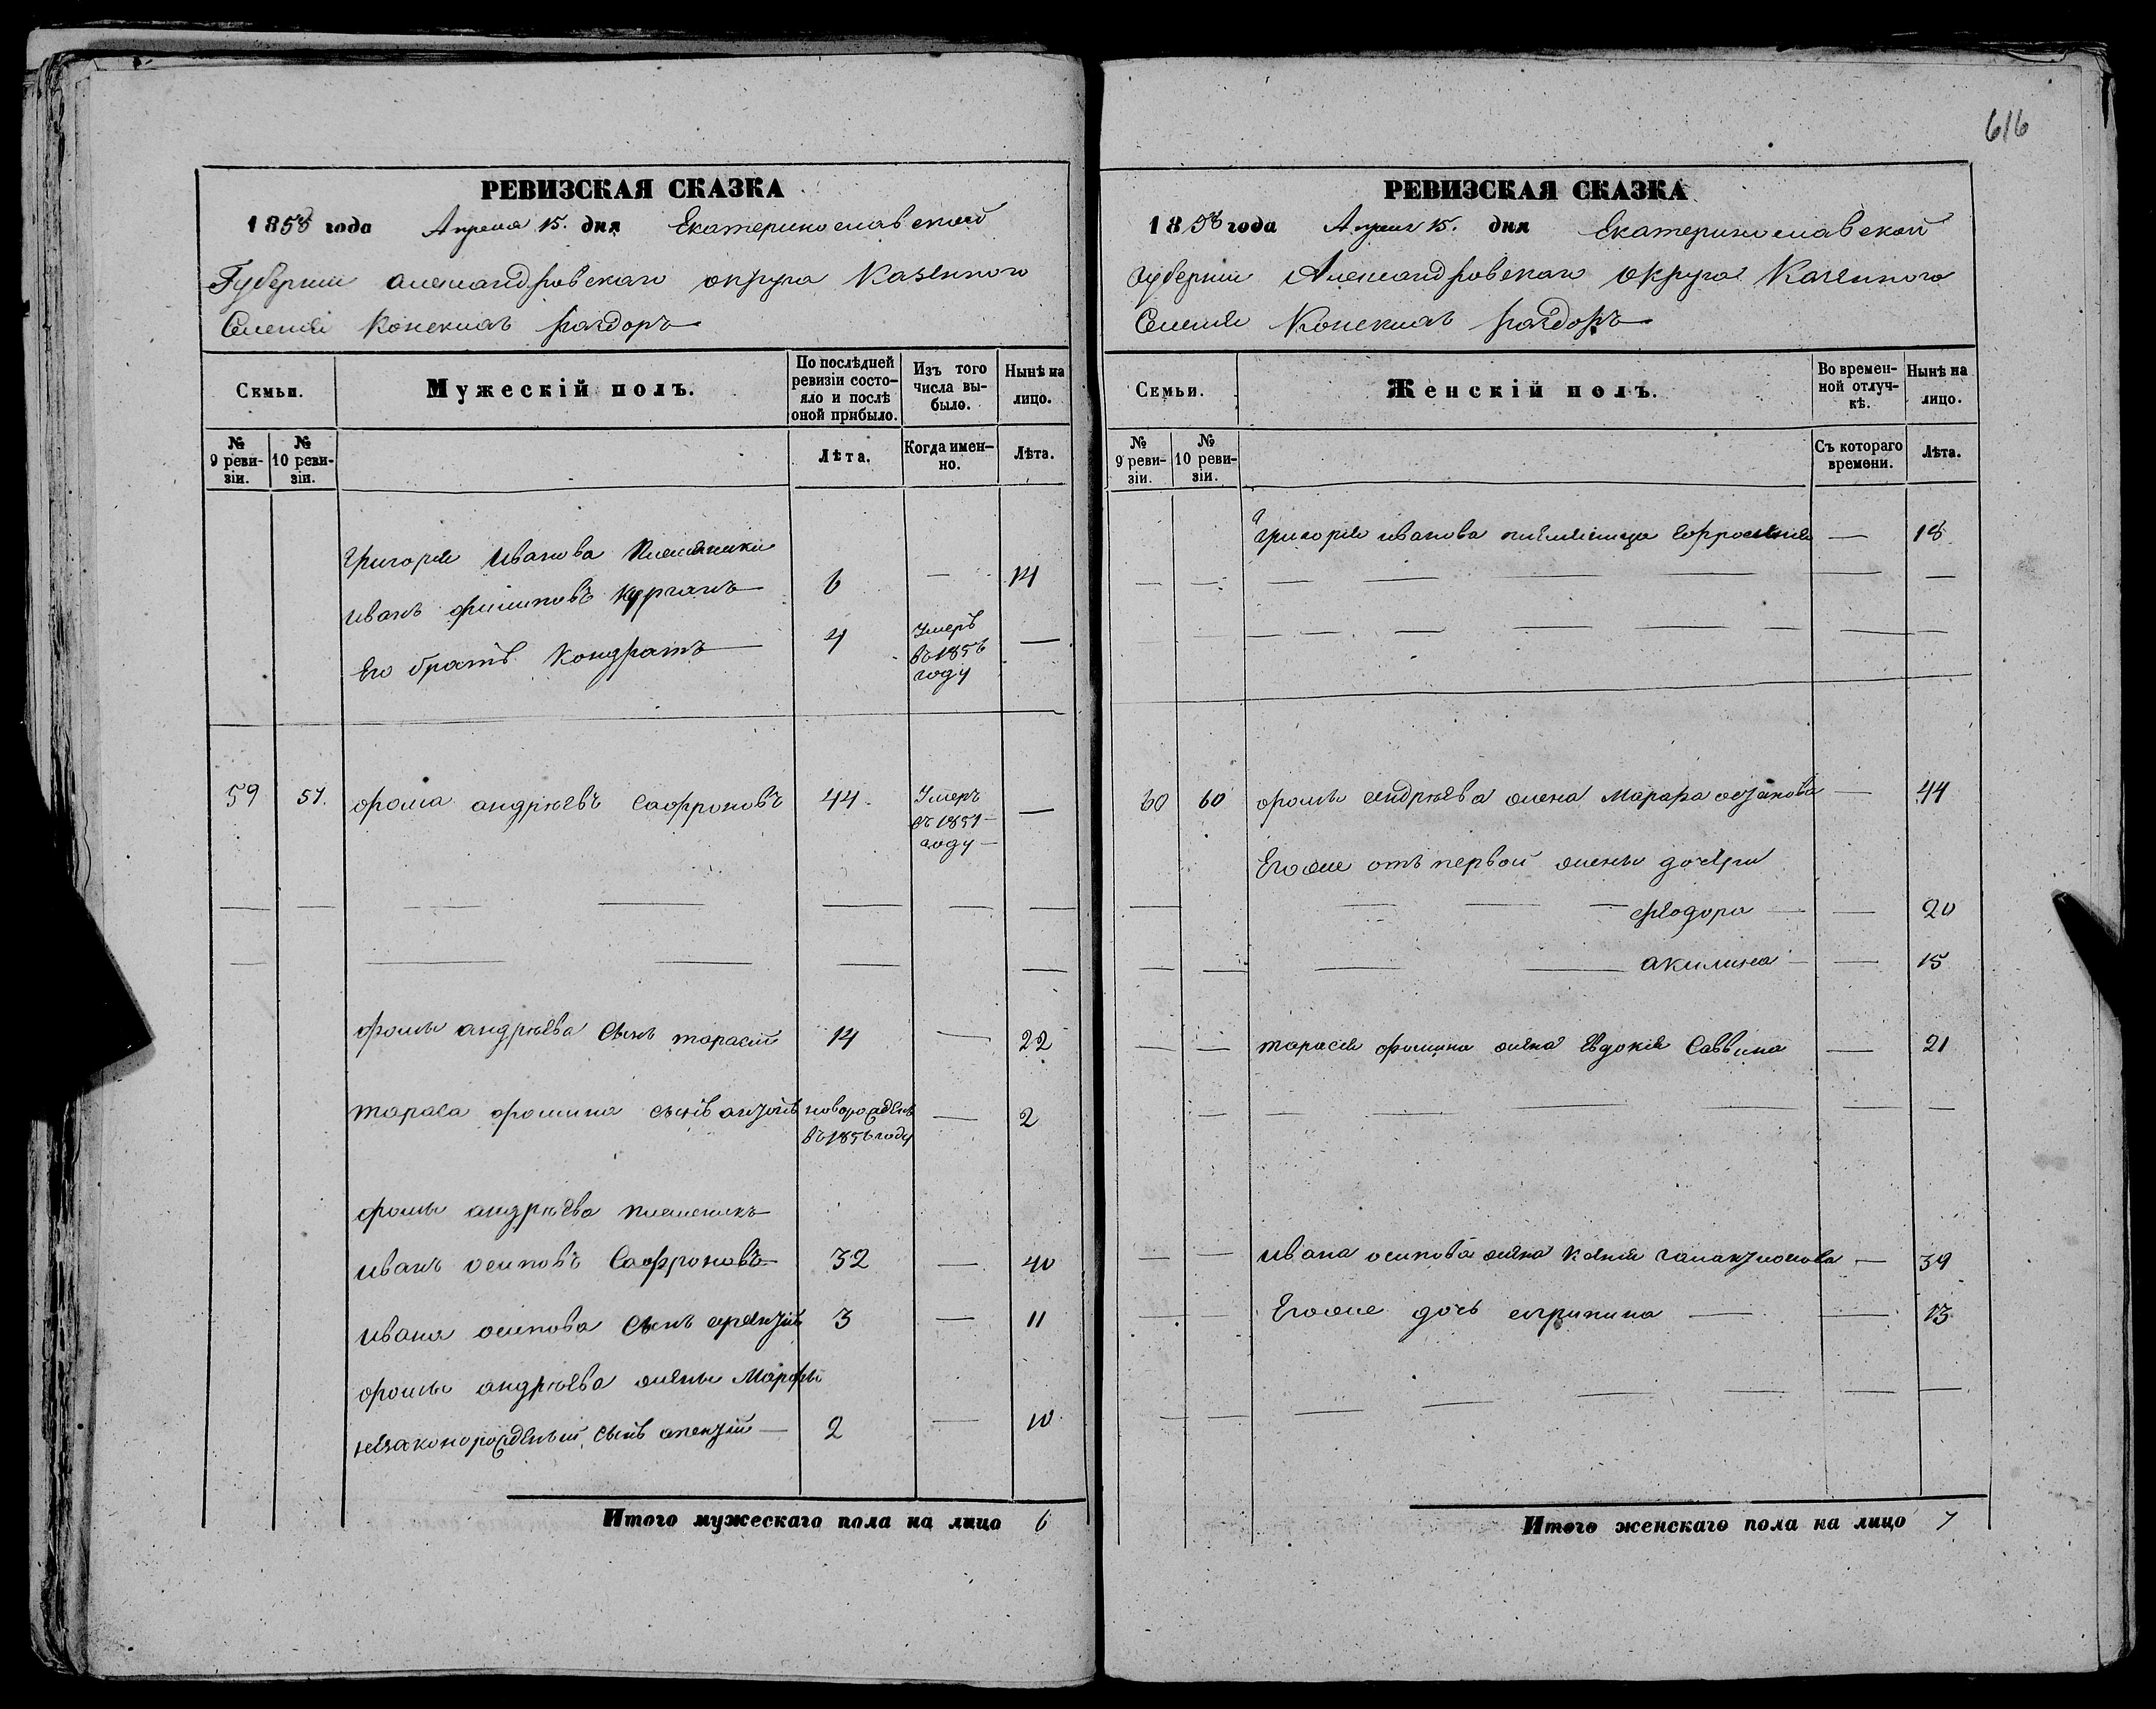 616
РЕВИЗСКАЯ СКАЗКА
1858 года Апреля 15. дня Екатеринославской
Губернии Александровскаго округа Казенного
Селения Конских раздоръ
Семьи. Мужескій полъ. По послѣдней ревизіи состояло и послѣ оной прибыло. Изъ того числа выбыло. Нынѣ на лицо.
№ 9 ревизіи. № 10 ревизіи. Лѣта. Когда именно. Лѣта.
Григорія Иванова Племяники
иванъ филиповъ курганъ 6 — 14
Его братъ Кондратъ 4 Умеръ въ 1856 году —
59 51. фома андрѣевъ Сафроновъ 44. Умеръ въ 1851 году —
фомы андрѣева Сынъ тарасий 14 — 22
тараса фомина сынъ новорожденъ въ 1856 году — 2
фомы андрѣева племеникъ
иванъ осиповъ Сафроновъ 32 — 40
ивана осипова Сынъ 3 — 11
фомы андрѣева жены Марфы
незаконорожденый сынъ 2 — 10
Итого мужескаго пола на лицо 6
РЕВИЗСКАЯ СКАЗКА
1858 года Апреля 15. дня Екатеринославской
губернии Александровскаго округа Казенного
Селения Конскихъ раздоръ
Семьи. Женскій полъ. Во временной отлучкѣ. Нынѣ на лицо.
№ 9 ревизіи. № 10 ревизіи. Съ котораго времени. Лѣта.
Григория иванова племяница Ефросиния — 18
60 60 фомы андрѣева жена Марфа — 44
Егоже отъ первой жены дочери
феодора — 20
акилина — 15
тарасия фомина жена Евдокия Саввина — 21
ивана осипова жена — 39
Егоже дочь агрипина — 13
Итого женскаго пола на лицо 7